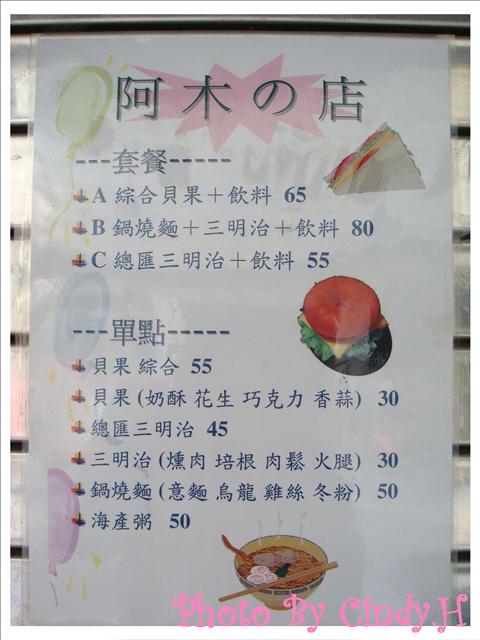 阿木の店
---套餐-----
A 綜合貝果＋飲料 65
B 鍋燒麵＋三明治＋飲料 80
C 總匯三明治＋飲料 55
---單點-----
貝果 綜合 55
貝果 (奶酥 花生 巧克力 香蒜) 30
總匯三明治 45
三明治 (燻肉 培根 肉鬆 火腿) 30
鍋燒麵 (意麵 烏龍 雞絲 冬粉) 50
海產粥 50
Photo By Cindy.H